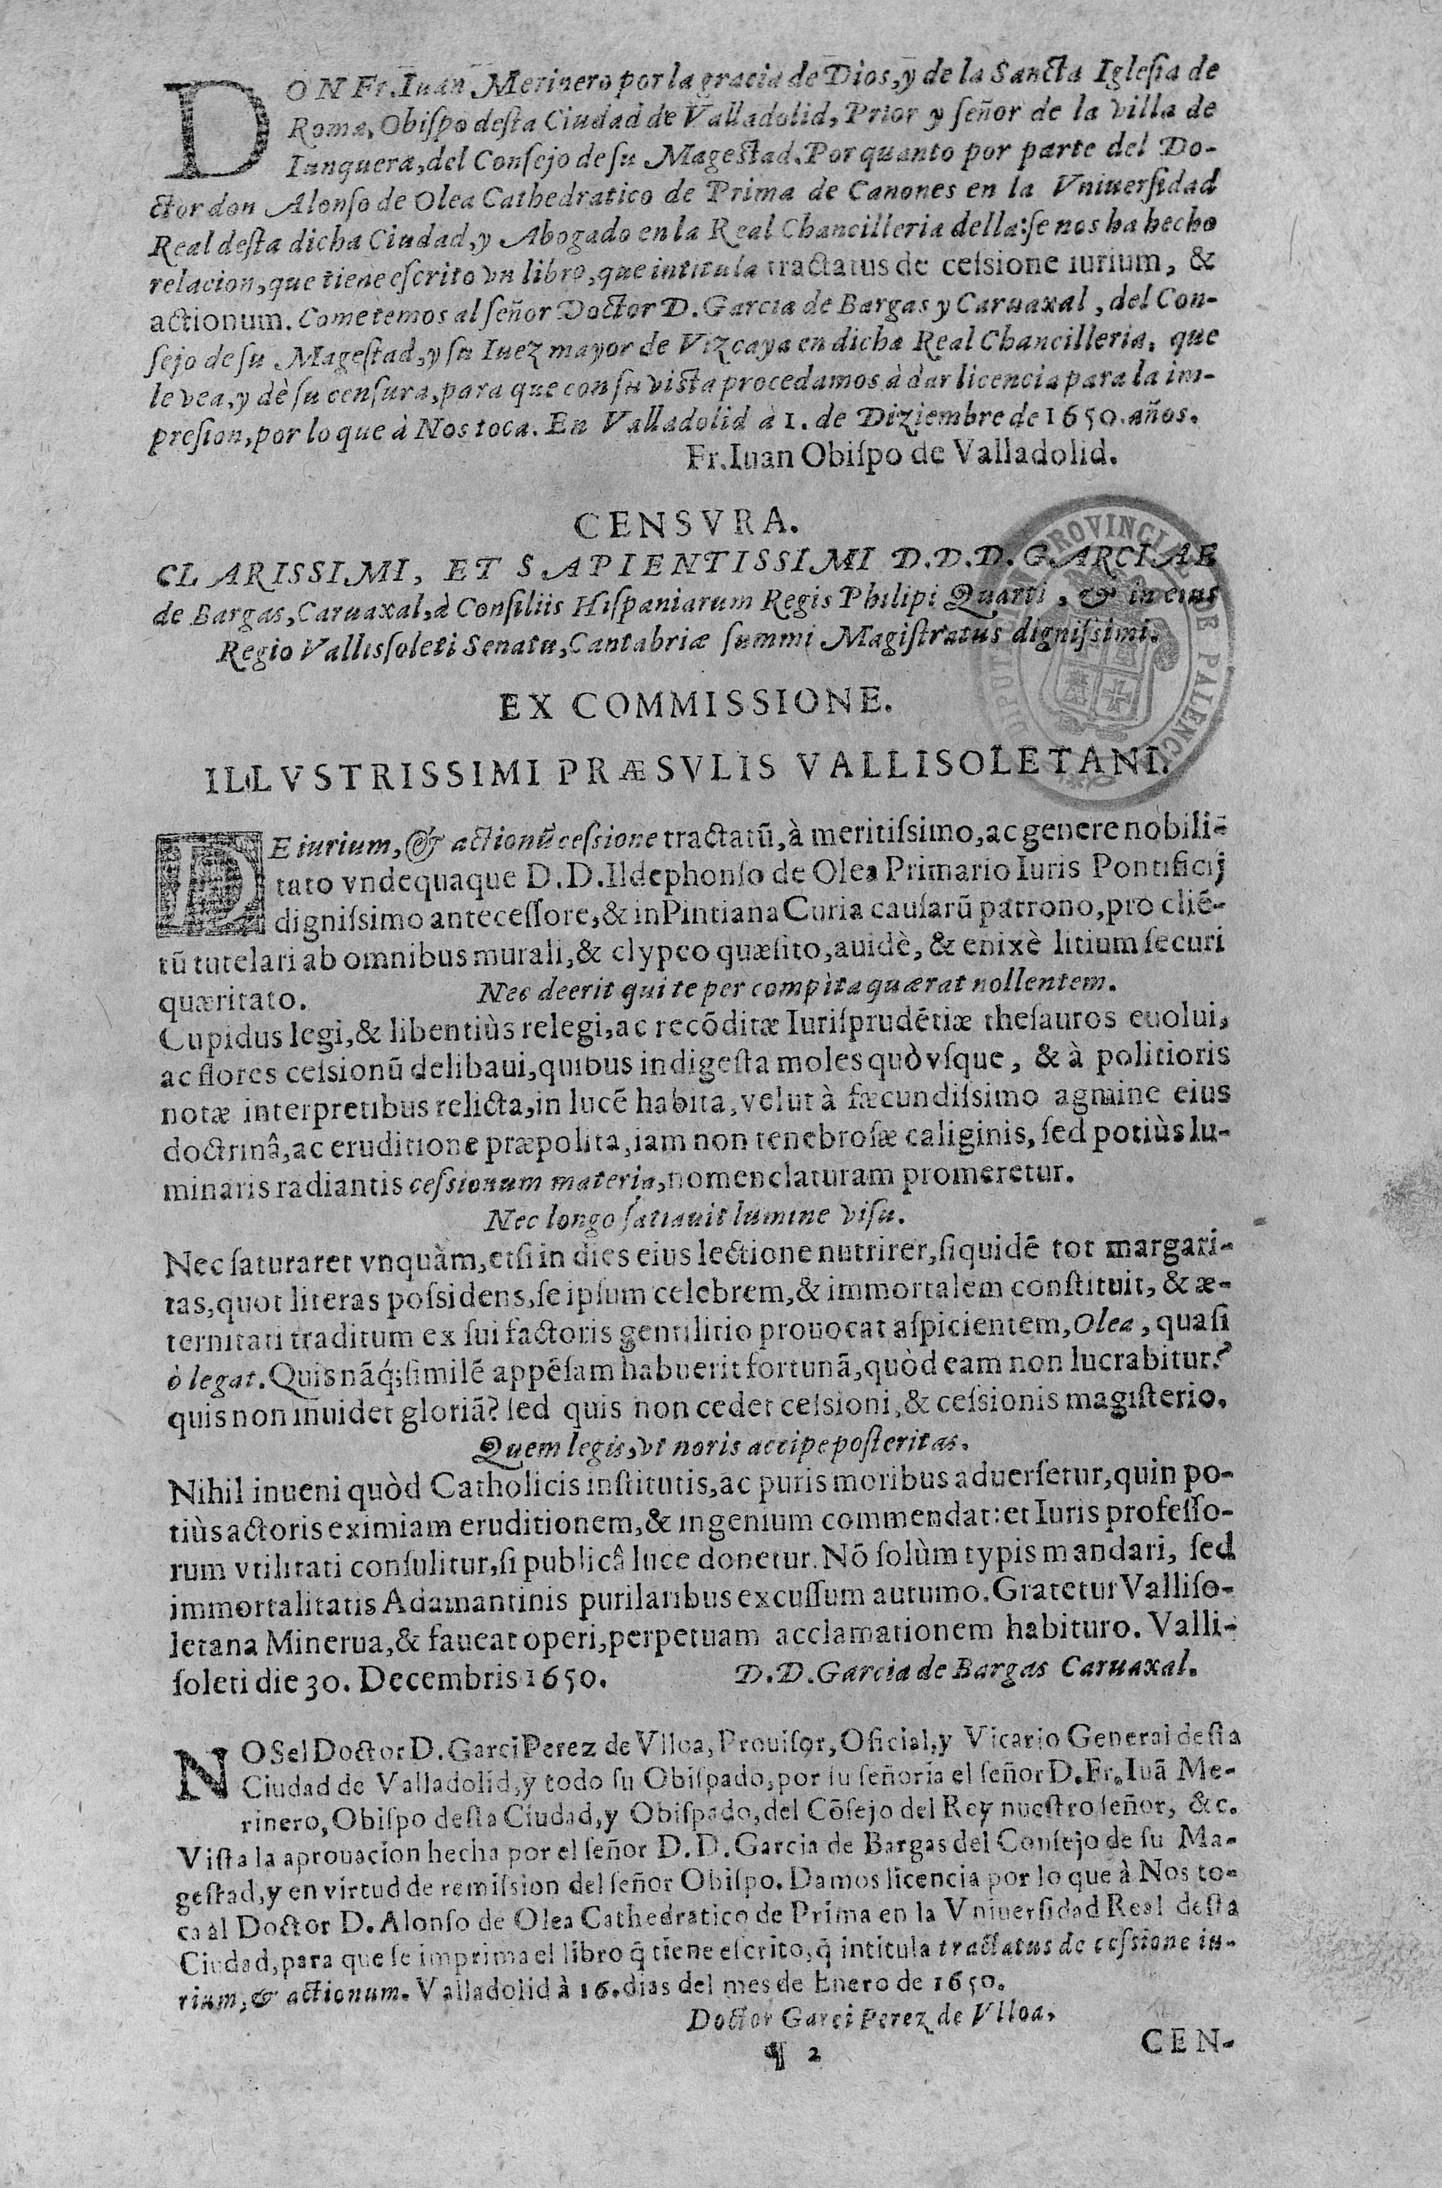 DON Fr. Iuan Merinero por la gracia de Dios, y de la Sancta Iglesia de
Roma, Obispo desta Ciudad de Valladolid, Prior y señor de la villa de
Iunquera, del Consejo de su Magestad. Por quanto por parte del Do-
ctor don Alonso de Olea Cathedratico de Prima de Canones en la Vniuersidad
Real desta dicha Ciudad, y Abogado en la Real Chancilleria della: se nos ha hecho
relacion, que tiene escrito vn libro, que intitula tractatus de cessione iurium, &
actionum. Cometemos al señor Doctor D. Garcia de Bargas y Caruaxal, del Con-
sejo de su Magestad, y su Iuez mayor de Vizcaya en dicha Real Chancilleria, que
le vea, y dè su censura, para que con su vista procedamos à dar licencia para la im-
presion, por lo que à Nos toca. En Valladolid à 1. de Diziembre de 1650. años.
Fr. Iuan Obispo de Valladolid.
CENSVRA.
CLARISSIMI, ET SAPIENTISSIMI D.D.D. GARCIAE
de Bargas, Caruaxal, à Consiliis Hispaniarum Regis Philipi Quarti, & in eius
Regio Vallissoleti Senatu, Cantabriæ summi Magistratus dignissimi.
EX COMMISSIONE.
ILLVSTRISSIMI PRÆSVLIS VALLISOLETANI.
DE iurium, & actionũ cessione tractatũ, à meritissimo, ac genere nobili-
tato vndequaque D.D. Ildephonso de Olea Primario Iuris Pontificij
dignissimo antecessore, & in Pintiana Curia causarũ patrono, pro cliẽ-
tũ tutelari ab omnibus murali, & clypeo quæsito, auidè, & enixè litium securi
quæritato. Nec deerit qui te per compita quærat nollentem.
Cupidus legi, & libentiùs relegi, ac recõditæ Iurisprudẽtiæ thesauros euolui,
ac flores cessionũ delibaui, quibus indigesta moles quò vsque, & à politioris
notæ interpretibus relicta, in lucẽ habita, velut à fæcundissimo agmine eius
doctrinâ, ac eruditione præpolita, iam non tenebrosæ caliginis, sed potiùs lu-
minaris radiantis cessionum materia, nomenclaturam promeretur.
Nec longo satiauit lumine visu.
Nec saturaret vnquàm, etsi in dies eius lectione nutrirer, siquidẽ tot margari-
tas, quot literas possidens, se ipsum celebrem, & immortalem constituit, & æ-
ternitati traditum ex sui factoris gentilitio prouocat aspicientem, Olea, quasi
ò legat. Quis nãq; similẽ appẽsam habuerit fortunã, quòd eam non lucrabitur?
quis non inuidet gloriã? sed quis non cedet cessioni, & cessionis magisterio.
Quem legis, vt noris accipe posteritas.
Nihil inueni quòd Catholicis institutis, ac puris moribus aduersetur, quin po-
tiùs actoris eximiam eruditionem, & ingenium commendat: et Iuris professo-
rum vtilitati consulitur, si publicâ luce donetur. Nõ solùm typis mandari, sed
immortalitatis Adamantinis purilaribus excussum autumo. Gratetur Valliso-
letana Minerua, & faueat operi, perpetuam acclamationem habituro. Valli-
soleti die 30. Decembris 1650. D.D. Garcia de Bargas Caruaxal.
NOS el Doctor D. Garci Perez de Vlloa, Prouisor, Oficial, y Vicario General desta
Ciudad de Valladolid, y todo su Obispado, por su señoria el señor D. Fr. Iuã Me-
rinero, Obispo desta Ciudad, y Obispado, del Cõsejo del Rey nuestro señor, &c.
Vista la aprouacion hecha por el señor D. D. Garcia de Bargas del Consejo de su Ma-
gestad, y en virtud de remission del señor Obispo. Damos licencia por lo que à Nos to-
ca al Doctor D. Alonso de Olea Cathedratico de Prima en la Vniuersidad Real desta
Ciudad, para que se imprima el libro q̃ tiene escrito, q̃ intitula tractatus de cessione iu-
rium, & actionum. Valladolid à 16. dias del mes de Enero de 1650.
Doctor Garci Perez de Vlloa.
¶ 2
CEN-
PROVINCIAL DE PALENCIA